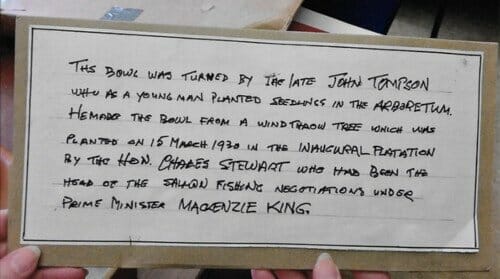 THS BOWL WAS TURNED BY THE LATE JOHN TOMPSON
WHO AS A YOUNG MAN PLANTED SEEDLINGS IN THE ARBORETUM.
HE MADE THE BOWL FROM A WINDTHROW TREE WHICH WAS
PLANTED ON 15 MARCH 1930 IN THE INAUGURAL PLATATION
BY THE HON. CHARES STEWART WHO HAD BEEN THE
HEAD OF THE SALMON FISHING NEGOTIATIONS UNDER
PRIME MINISTER MACKENZIE KING.